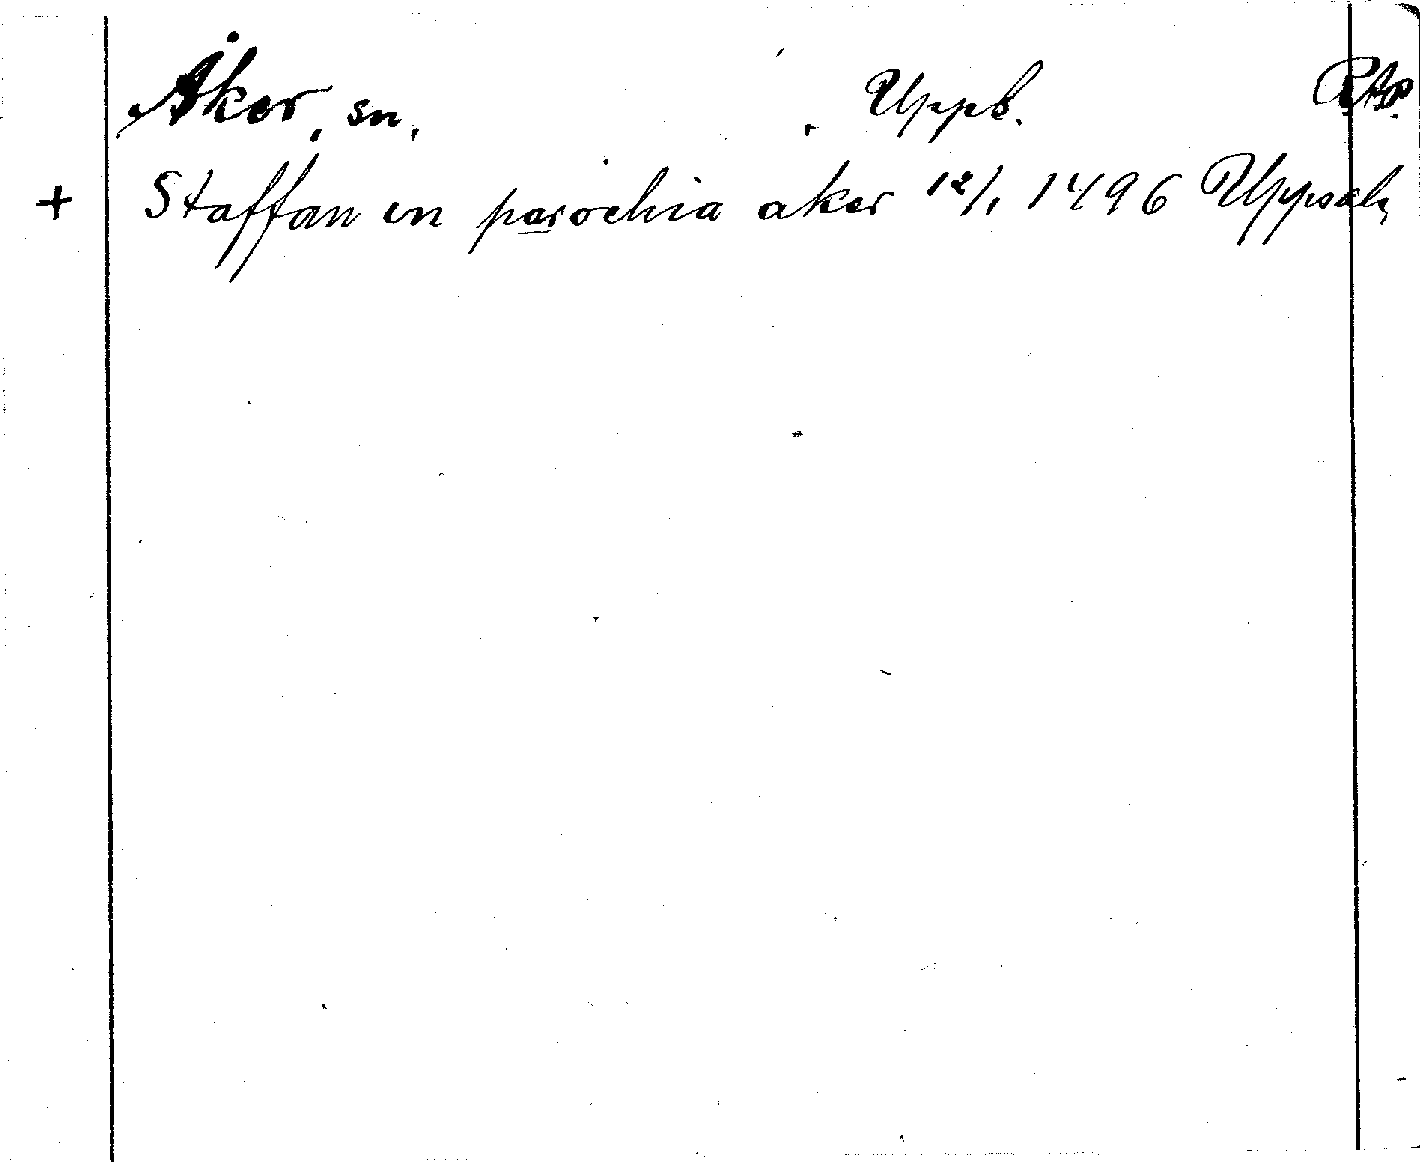 Åker, sn. Uppb. RAP.
+ Staffan in parochia aker 12/1 1496 Uppsala